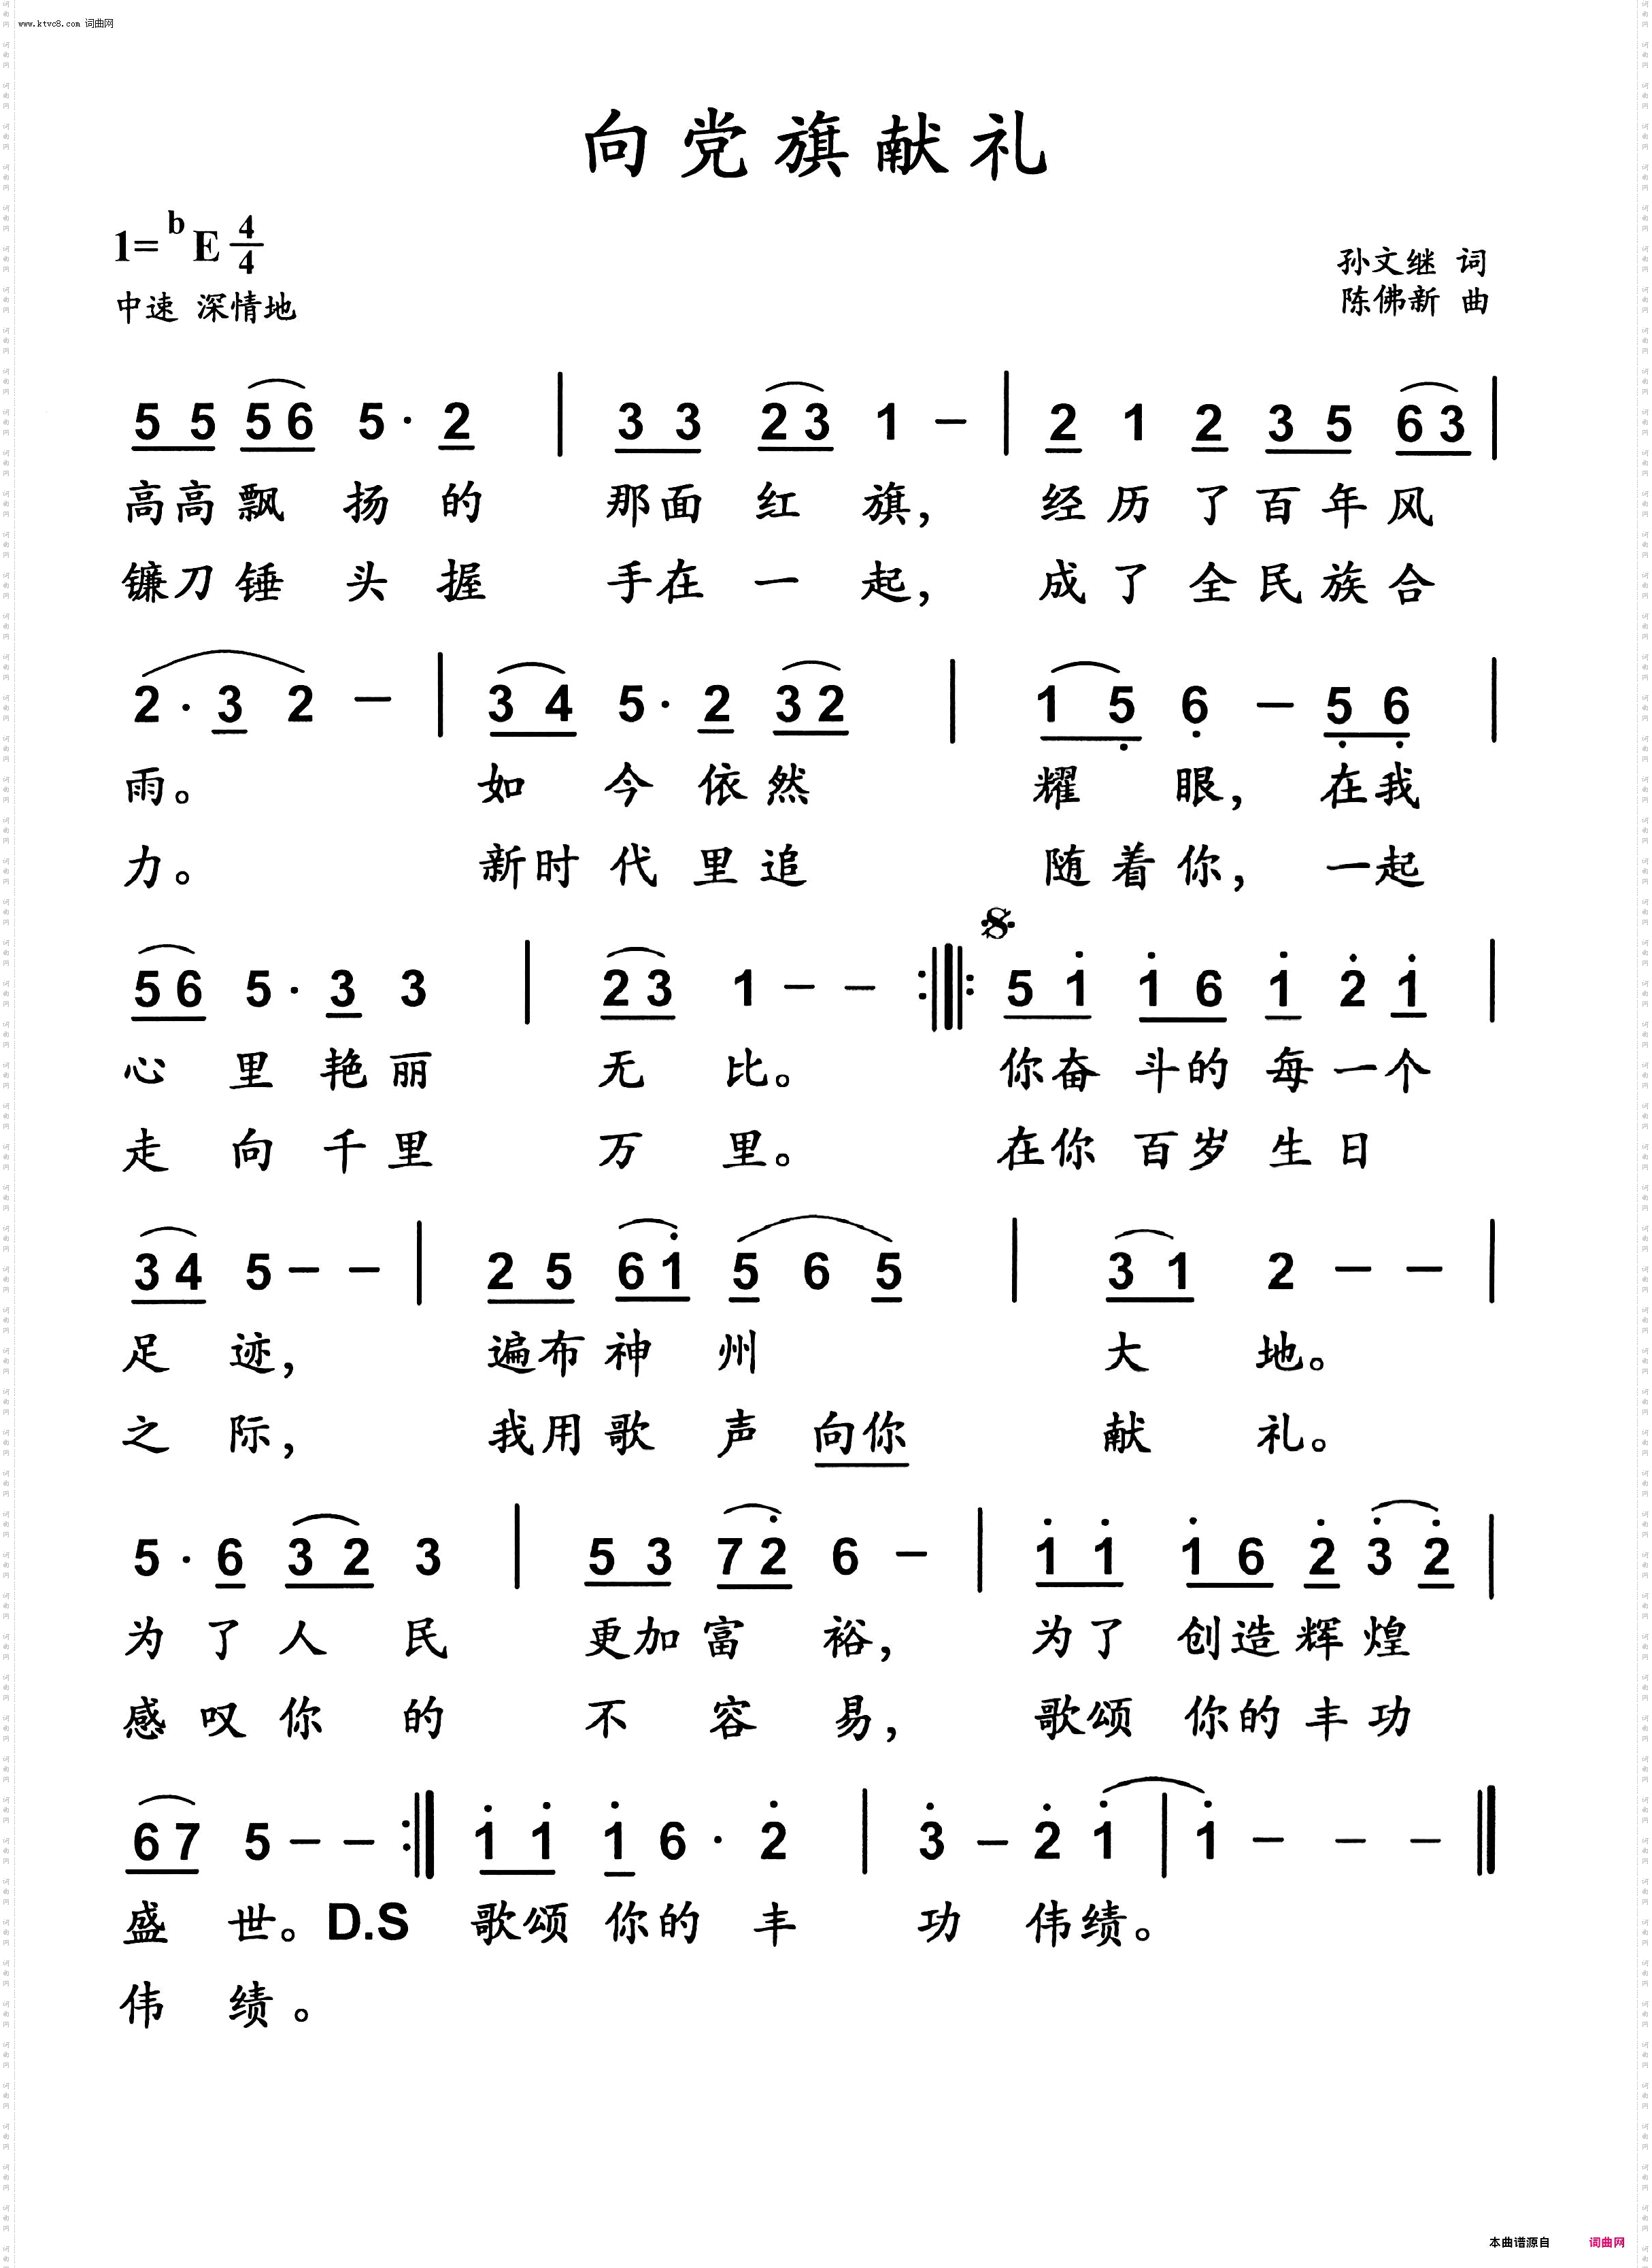 www.ktvc8.com 词曲网
向党旗献礼
1=bE 4/4
孙文继 词
中速 深情地
陈佛新 曲
5 5 5 6 5 · 2 | 3 3 2 3 1 – | 2 1 2 3 5 6 3 |
高高飘 扬 的 那面 红 旗， 经 历 了 百 年 风
镰刀 锤 头 握 手在 一 起， 成 了 全 民 族 合
2 · 3 2 – | 3 4 5 · 2 3 2 | 1 5 6 – 5 6 |
雨。 如 今 依 然 耀 眼， 在我
力。 新时 代 里 追 随 着 你， 一起
5 6 5 · 3 3 | 2 3 1 – – :‖: 5 1 1 6 1 2 1 |
心 里 艳 丽 无 比。 你奋 斗的 每 一 个
走 向 千 里 万 里。 在你 百岁 生 日
3 4 5 – – | 2 5 6 1 5 6 5 | 3 1 2 – – |
足 迹， 遍布 神 州 大 地。
之 际， 我用 歌 声 向你 献 礼。
5 · 6 3 2 3 | 5 3 7 2 6 – | 1 1 1 6 2 3 2 |
为 了 人 民 更加 富 裕， 为了 创造 辉 煌
感 叹 你 的 不 容 易， 歌颂 你的 丰 功
6 7 5 – – :‖ 1 1 1 6 · 2 | 3 – 2 1 | 1 – – – ‖
盛 世。D.S 歌颂 你的 丰 功 伟绩。
伟 绩。
本曲谱源自 词曲网